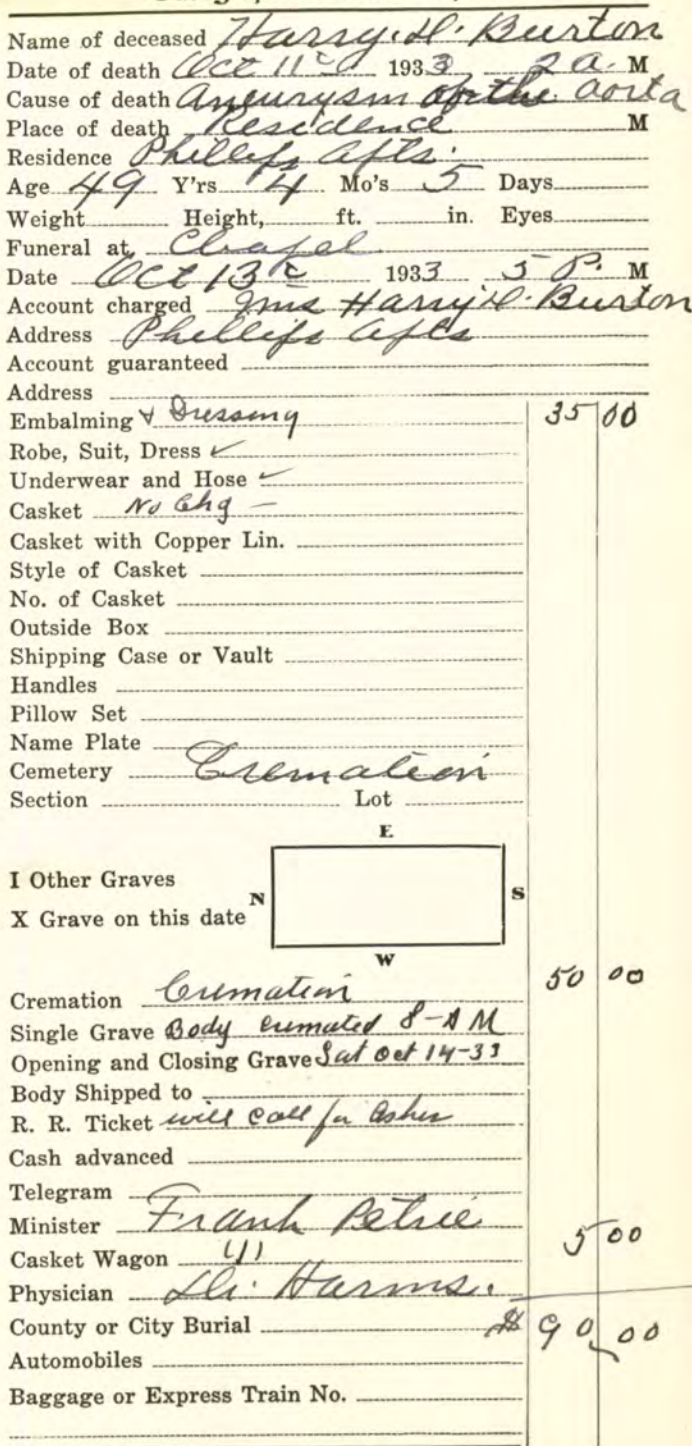 Name of deceased Harry. D. Burton
Date of death Oct 11 1933 2 a. M
Cause of death Aneurysm of the aorta
Place of death Residence M
Residence Phillips Apts.
Age 49 Y'rs 4 Mo's 5 Days
Weight Height, ft. in. Eyes
Funeral at Chapel
Date Oct 13 1933 5 P. M
Account charged Mrs Harry D. Burton
Address Phillips Apts
Account guaranteed
Address
Embalming & Dressing 35 00
Robe, Suit, Dress ✓
Underwear and Hose ✓
Casket No Chg –
Casket with Copper Lin.
Style of Casket
No. of Casket
Outside Box
Shipping Case or Vault
Handles
Pillow Set
Name Plate
Cemetery Cremation
Section Lot
E
I Other Graves
N S
X Grave on this date
W
Cremation Cremation 50 00
Single Grave Body cremated 8 - A M
Opening and Closing Grave Sat Oct 14-33
Body Shipped to
R. R. Ticket will call for Ashes
Cash advanced
Telegram
Minister Frank Petrie 5 00
Casket Wagon
Physician Dr. Harms.
County or City Burial $ 90 00
Automobiles
Baggage or Express Train No.